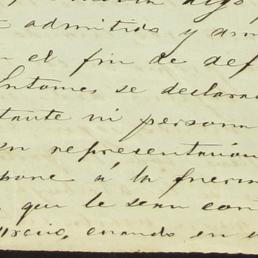 algo
admitidos y
el fin de def
Entonces se declara
tante ni persona
en representación
pone á la fuerza
que le sean con
cuando en